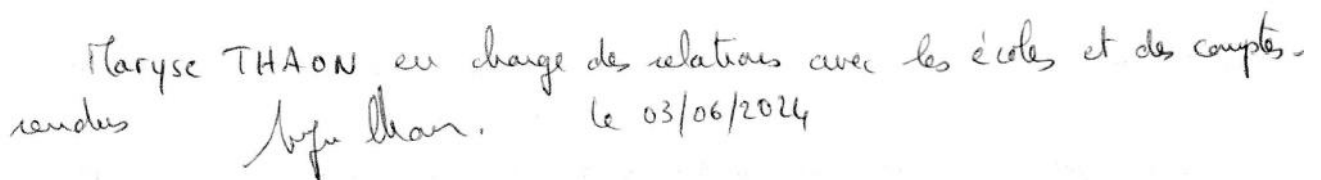 Maryse THAON en charge des relations avec les écoles et des comptes-
rendus le 03/06/2024